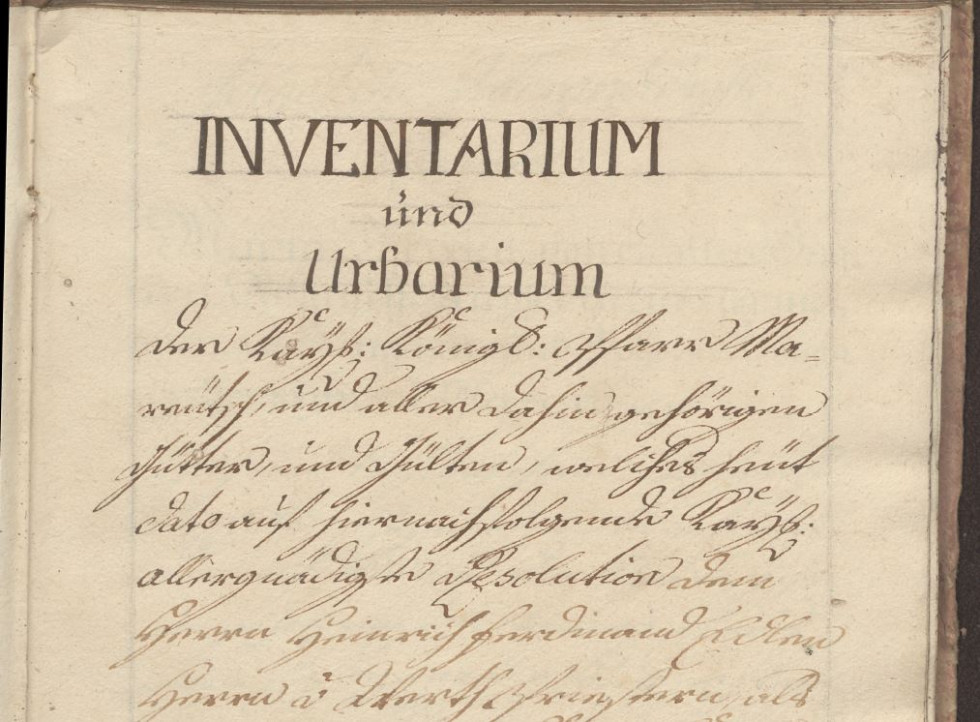 INVENTARIUM
und
Urbarium
der Kayß: Königl: Pfarr Ma=
reütsch, und aller dahin gehörigen
Gütter, und Gülten, welches heüt
dato auf hiernachfolgende Kayß:
allergnädigste Resolution dem
Herrn Heinrich Ferdinand Edlen
Herrn á Werth Priestern, als